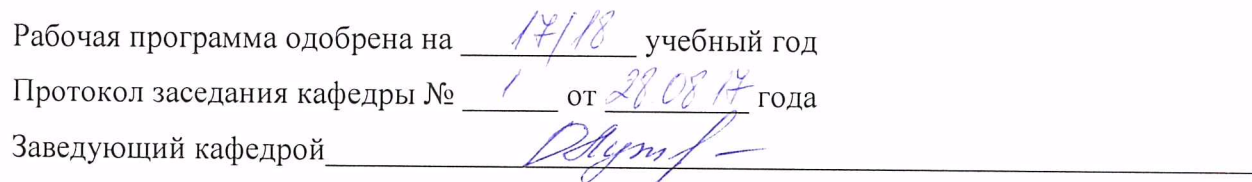 Рабочая программа одобрена на 17/18 учебный год
Протокол заседания кафедры № 1 от 28 08 17 года
Заведующий кафедрой